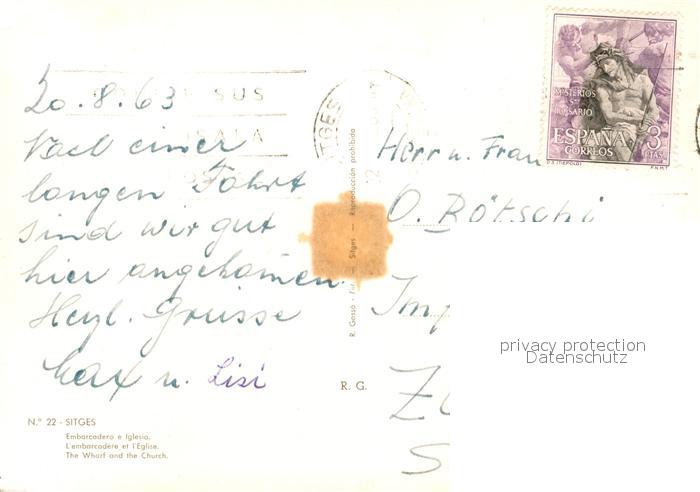 20.8.63
Nach einer
langen Fahrt
sind wir gut
hier angekomen.
Herzl. Grüsse
Max u. Lisi
Herr u. Frau
O. Rötschi
N.º 22 - SITGES
Embarcadero e Iglesia.
L'embarcadère et l'Eglise.
The Wharf and the Church.
R. G.
R. Gassó - Fot. - Sitges - Reproducción prohibida
SUS
SITGES
MISTERIOS
Sto
ROSARIO
ESPAÑA 3
CORREOS PTAS
(TIEPOLO) F.N.M.T
privacy protection
Datenschutz